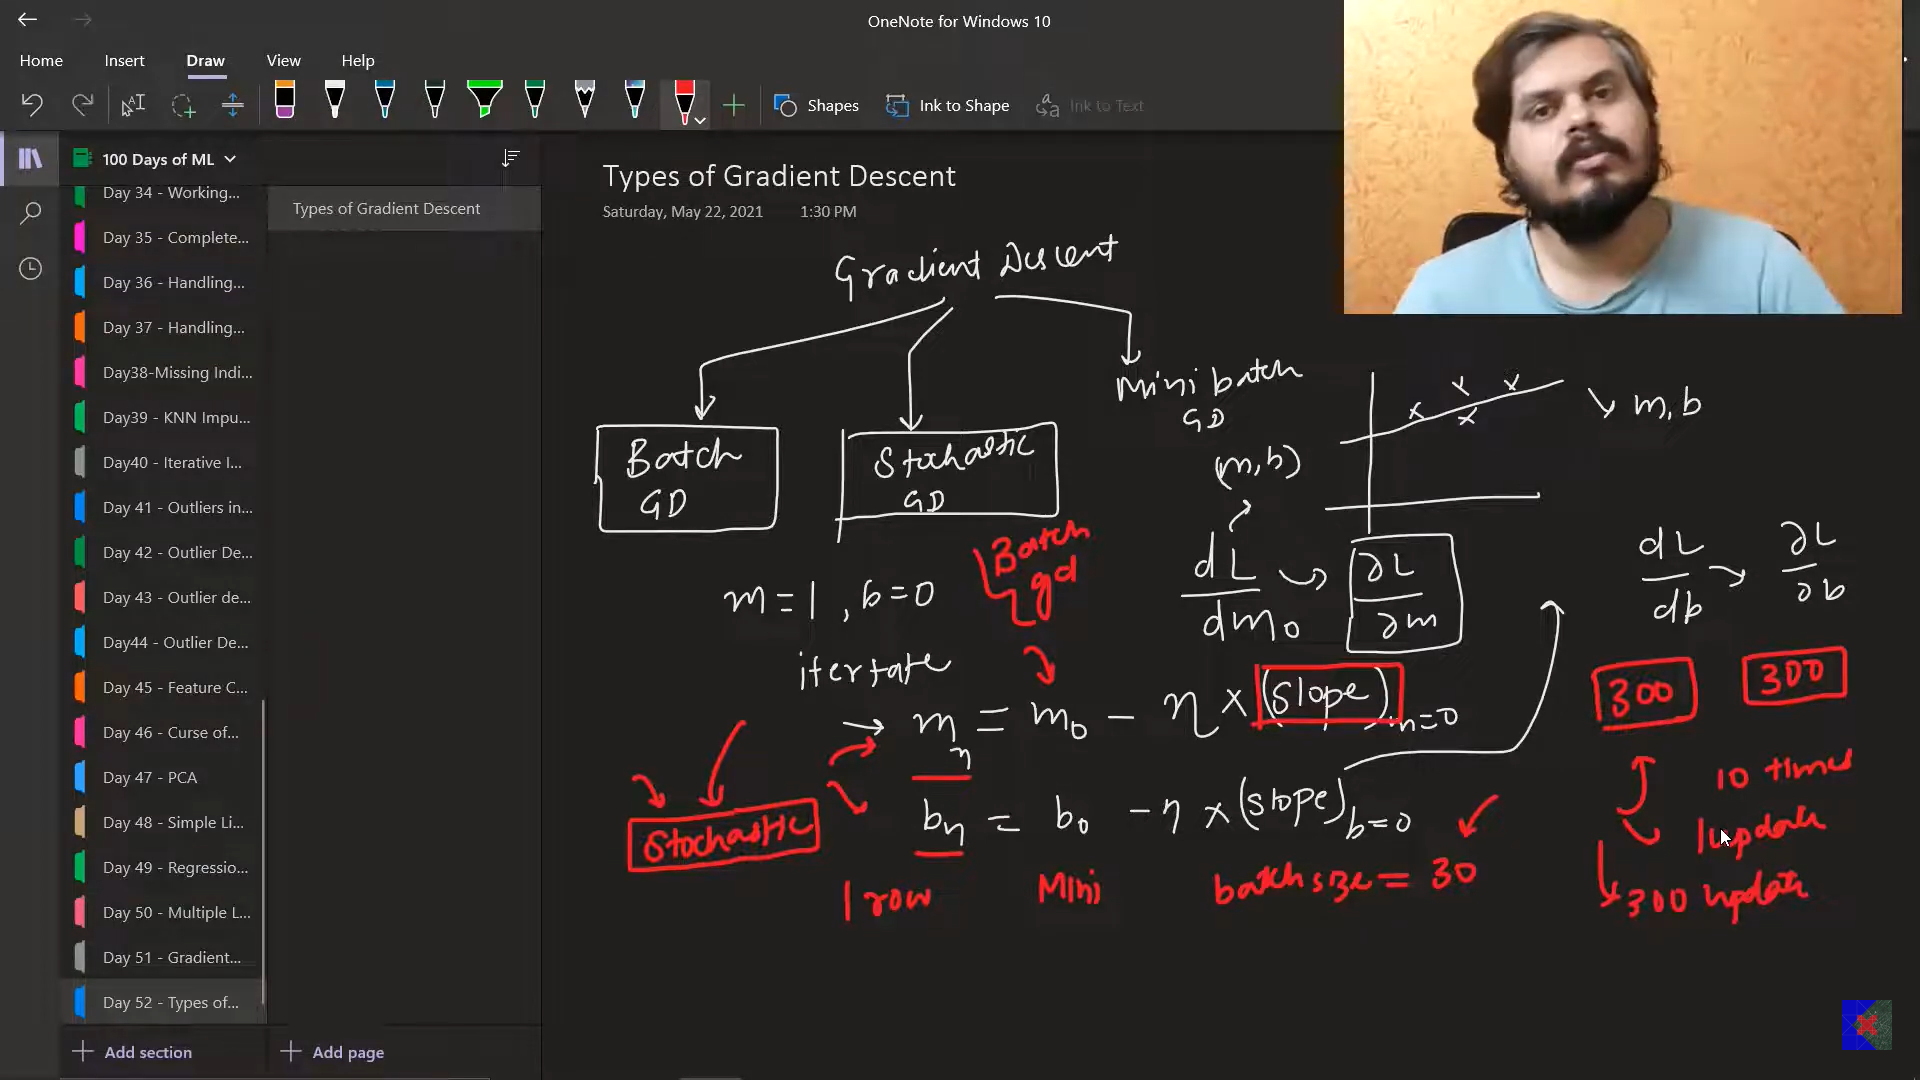 OneNote for Windows 10
Home Insert Draw View Help
Shapes Ink to Shape Ink to Text
100 Days of ML
Day 34 - Working...
Day 35 - Complete...
Day 36 - Handling...
Day 37 - Handling...
Day38-Missing Indi...
Day39 - KNN Impu...
Day40 - Iterative I...
Day 41 - Outliers in...
Day 42 - Outlier De...
Day 43 - Outlier de...
Day44 - Outlier De...
Day 45 - Feature C...
Day 46 - Curse of...
Day 47 - PCA
Day 48 - Simple Li...
Day 49 - Regressio...
Day 50 - Multiple L...
Day 51 - Gradient...
Day 52 - Types of...
Add section
Types of Gradient Descent
Add page
Types of Gradient Descent
Saturday, May 22, 2021 1:30 PM
Gradient Descent
Batch
GD
Stochastic
GD
Mini batch
GD
m, b
(m, b)
Batch
gd
m = 1 , b = 0
dL
dm₀
∂L
∂m
dL
db
∂L
∂b
itertate
mη = m₀ - η × (slope)m=0
bη = b₀ - η × (slope)b=0
Stochastic
1 row
Mini
batch size = 30
300
300
10 times
1 update
300 update